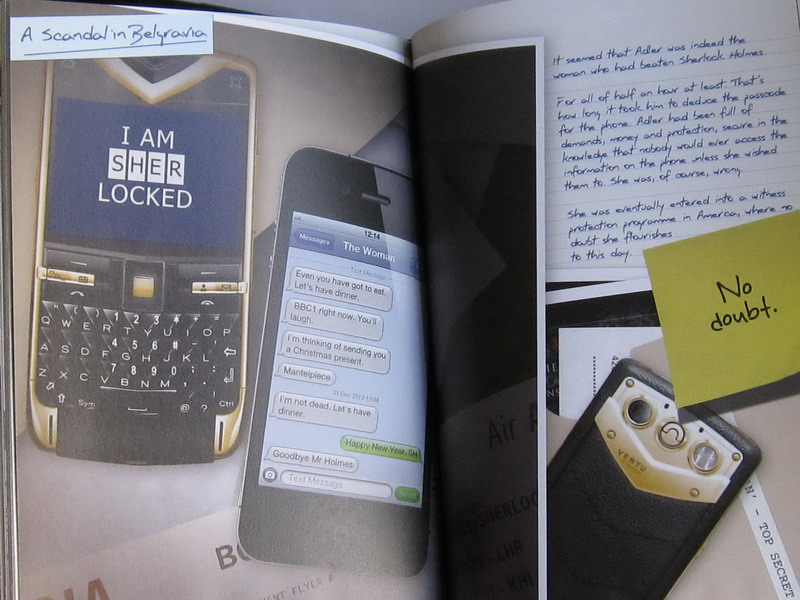 A Scandal in Belgravia
I AM
SHER
LOCKED
Q W E R T Y U I O P
A S D F G H J K L
Z X C V B N M
Sym
@ ? Ctrl
12:14
Messages
The Woman
Text Message
Even you have got to eat.
Let's have dinner.
BBC1 right now. You'll
laugh.
I'm thinking of sending you
a Christmas present.
Mantelpiece
31 Dec 2012
I'm not dead. Let's have
dinner.
Happy New Year. SH
Goodbye Mr Holmes
Text Message
Send
It seemed that Adler was indeed the
woman who had beaten Sherlock Holmes.
For all of half an hour at least. That's
how long it took him to deduce the passcode
for the phone. Adler had been full of
demands, money and protection, secure in the
knowledge that nobody would ever access the
information on the phone unless she wished
them to. She was, of course, wrong.
She was eventually entered into a witness
protection programme in America, where no
doubt she flourishes
to this day.
No
doubt.
VERTU
TOP SECRET
Air
SHERLO
LHR
KHI